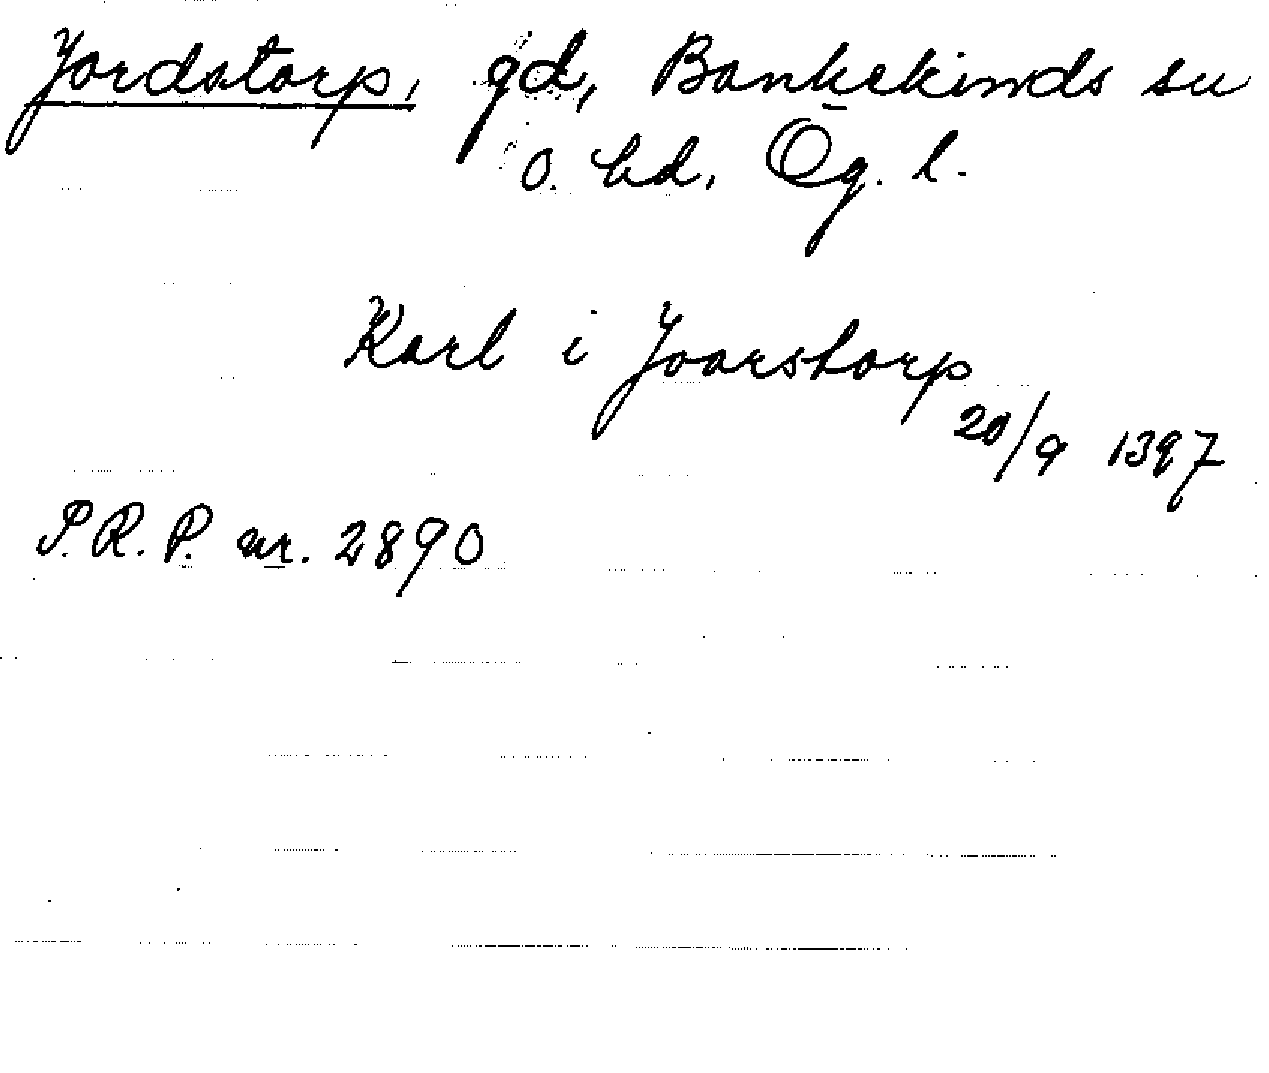 Jordstorp, gd, Bankekinds sn
o. hd, Ög. l.
Karl i Joarstorp
20/9 1397
S.R.P. nr. 2890